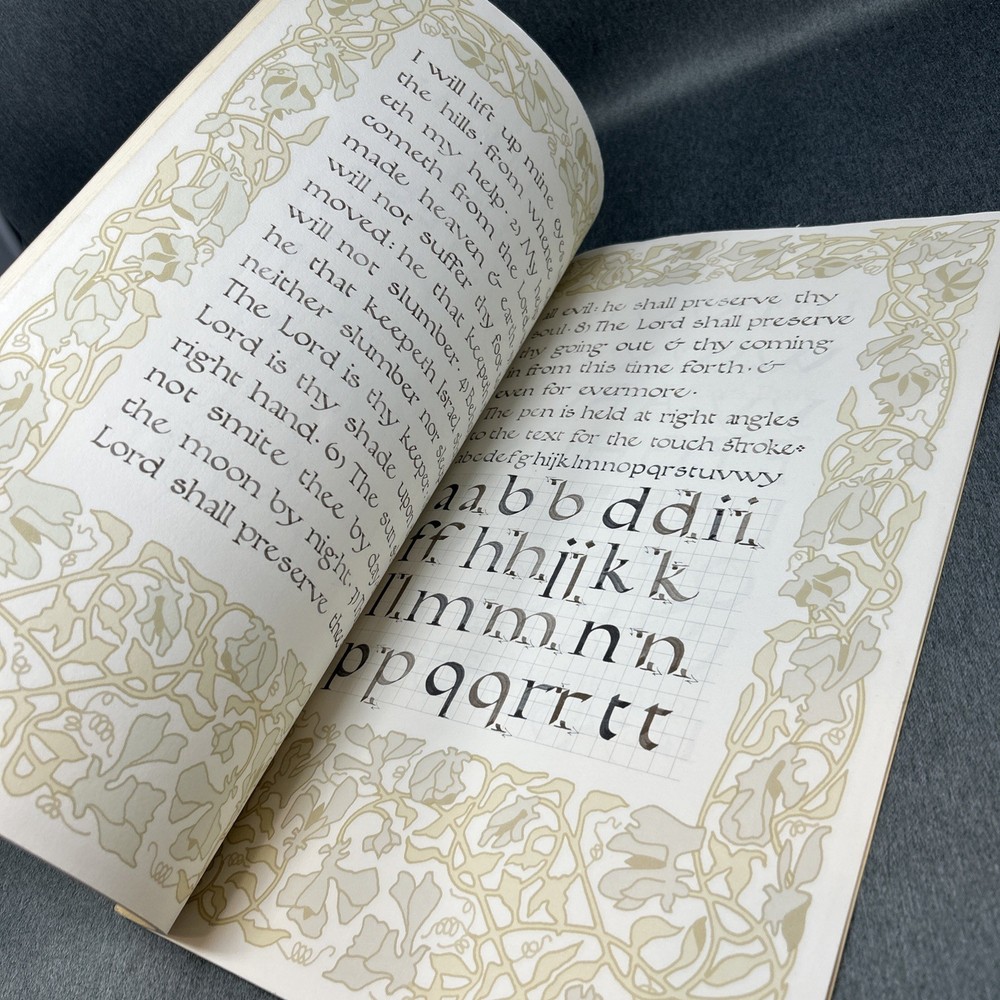 I will lift up mine eyes
the hills, from whence
eth my help. 2) My he
cometh from the Lord
made heaven & earth
will not suffer thy foot
moved: he that keepeth
will not slumber. 4) Be
he that keepeth Israel s
neither slumber nor slee
The Lord is thy keeper
Lord is thy shade upon
right hand. 6) The sun s
not smite thee by day
the moon by night. 7) T
Lord shall preserve the
all evil: he shall preserve thy
soul. 8) The Lord shall preserve
thy going out & thy coming
in from this time forth, &
even for evermore.
The pen is held at right angles
to the text for the touch stroke:
abcdefghijklmnopqrstuvwy
aabbddii
ffhhjjkk
llmmnn
ppqqrrtt